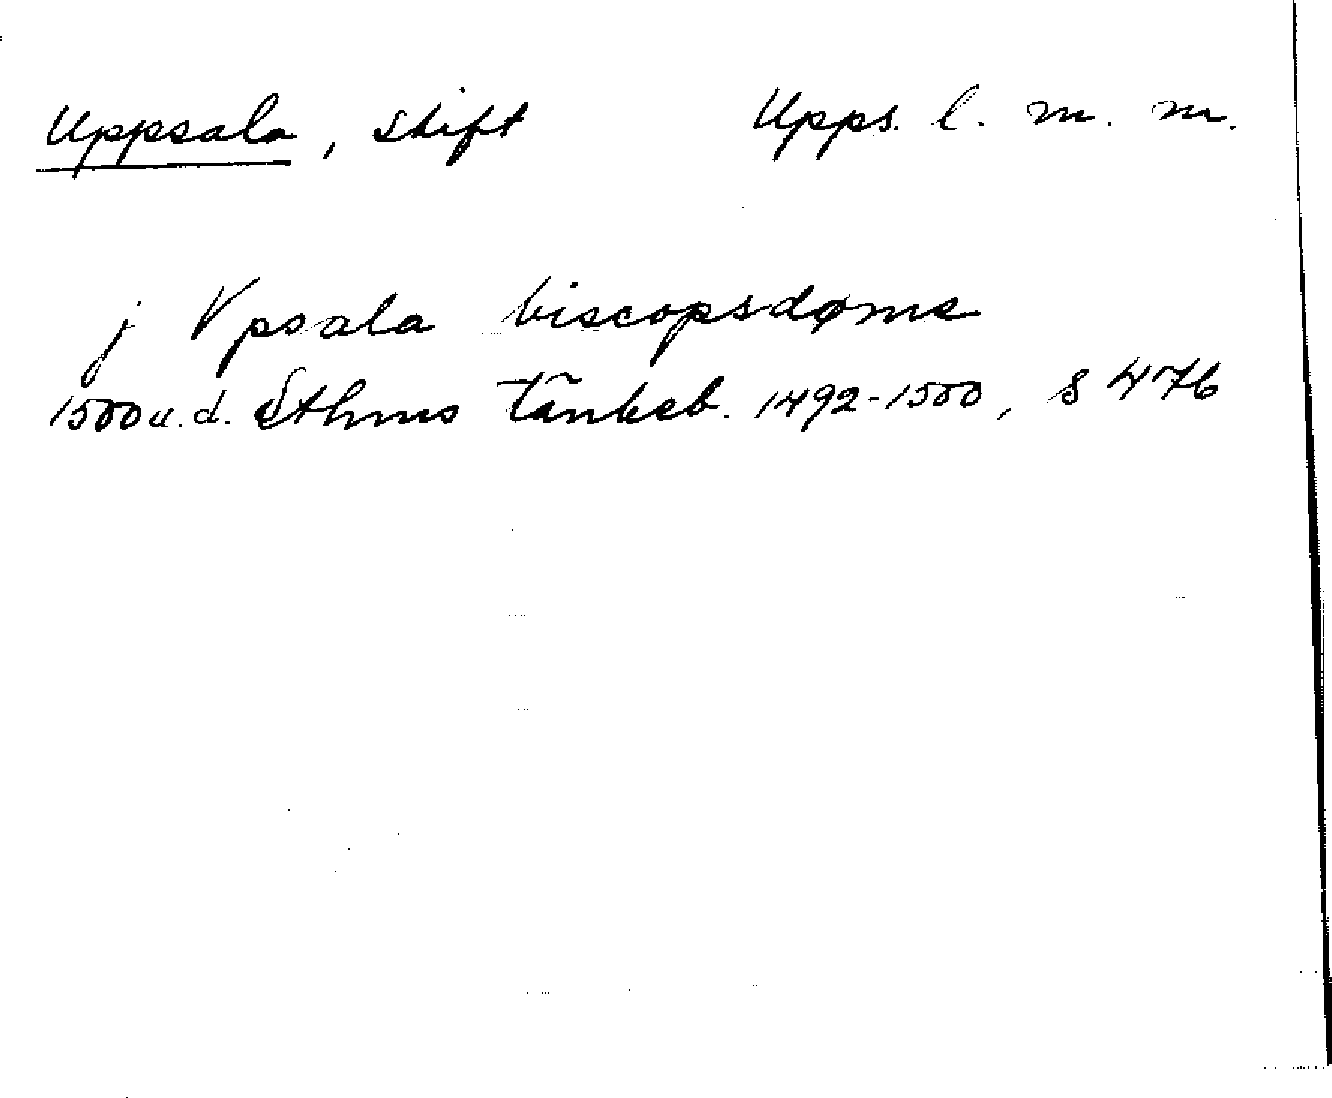 Uppsala, stift Upps. l. m. m.
j Vpsala biscopsdøme
1500 u. d. Sthms tänkeb. 1492-1500, s 476